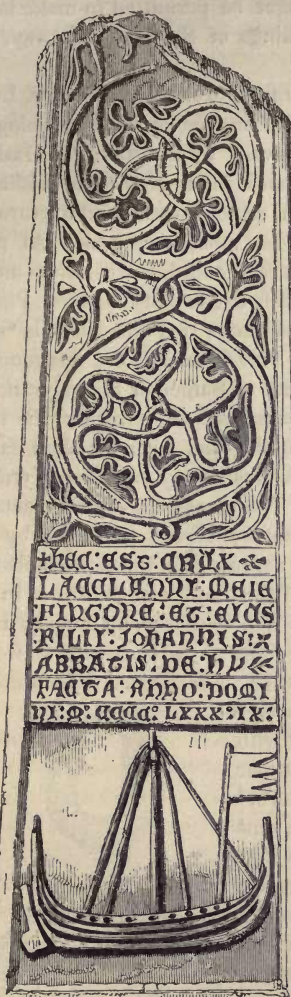 +hec:est:crux
lacclanni:meie
:fingone:et:eius
:filii:Johannis:x
abbatis:de:hy
facta:anno:domi
ni:m:cccc:lxxx:ix: